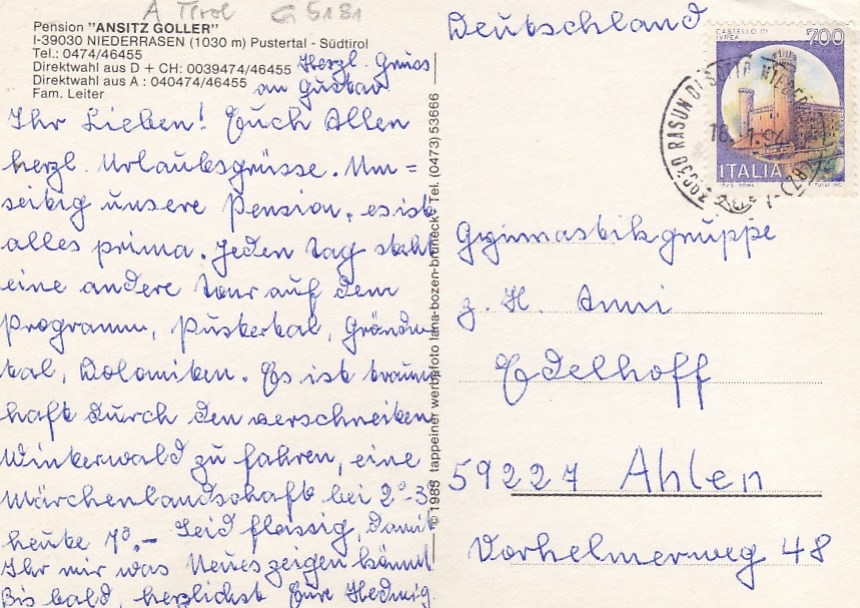 A Tirol G 5181
Pension "ANSITZ GOLLER"
I-39030 NIEDERRASEN (1030 m) Pustertal - Südtirol
Tel.: 0474/46455
Direktwahl aus D + CH: 0039474/46455
Direktwahl aus A : 040474/46455
Fam. Leiter
Herzl. Gruss
an Gustav
Ihr Lieben! Euch Allen
herzl. Urlaubsgrüsse. Um=
seitig unsere Pension, es ist
alles prima. Jeden Tag steht
eine andere Tour auf dem
Programm, Pustertal,
tal, Dolomiten. Es ist traum
haft durch den verschneiten
Winterwald zu fahren, eine
Märchenlandschaft bei 2°-3
heute 7°.- Seid fleissig, damit
Ihr mir was Neues zeigen könnt
Bis bald, herzlichst Eure Hedwig.
© 1985 tappeiner werbefoto lana-bozen-bruneck • Tel. (0473) 53666
Deutschland
CASTELLO DI
IVREA
700
ITALIA
39030 RASUN DI SOTTO
Gymnastikgruppe
z. H. Anni
Edelhoff
59227 Ahlen
Vorhelmerweg 48